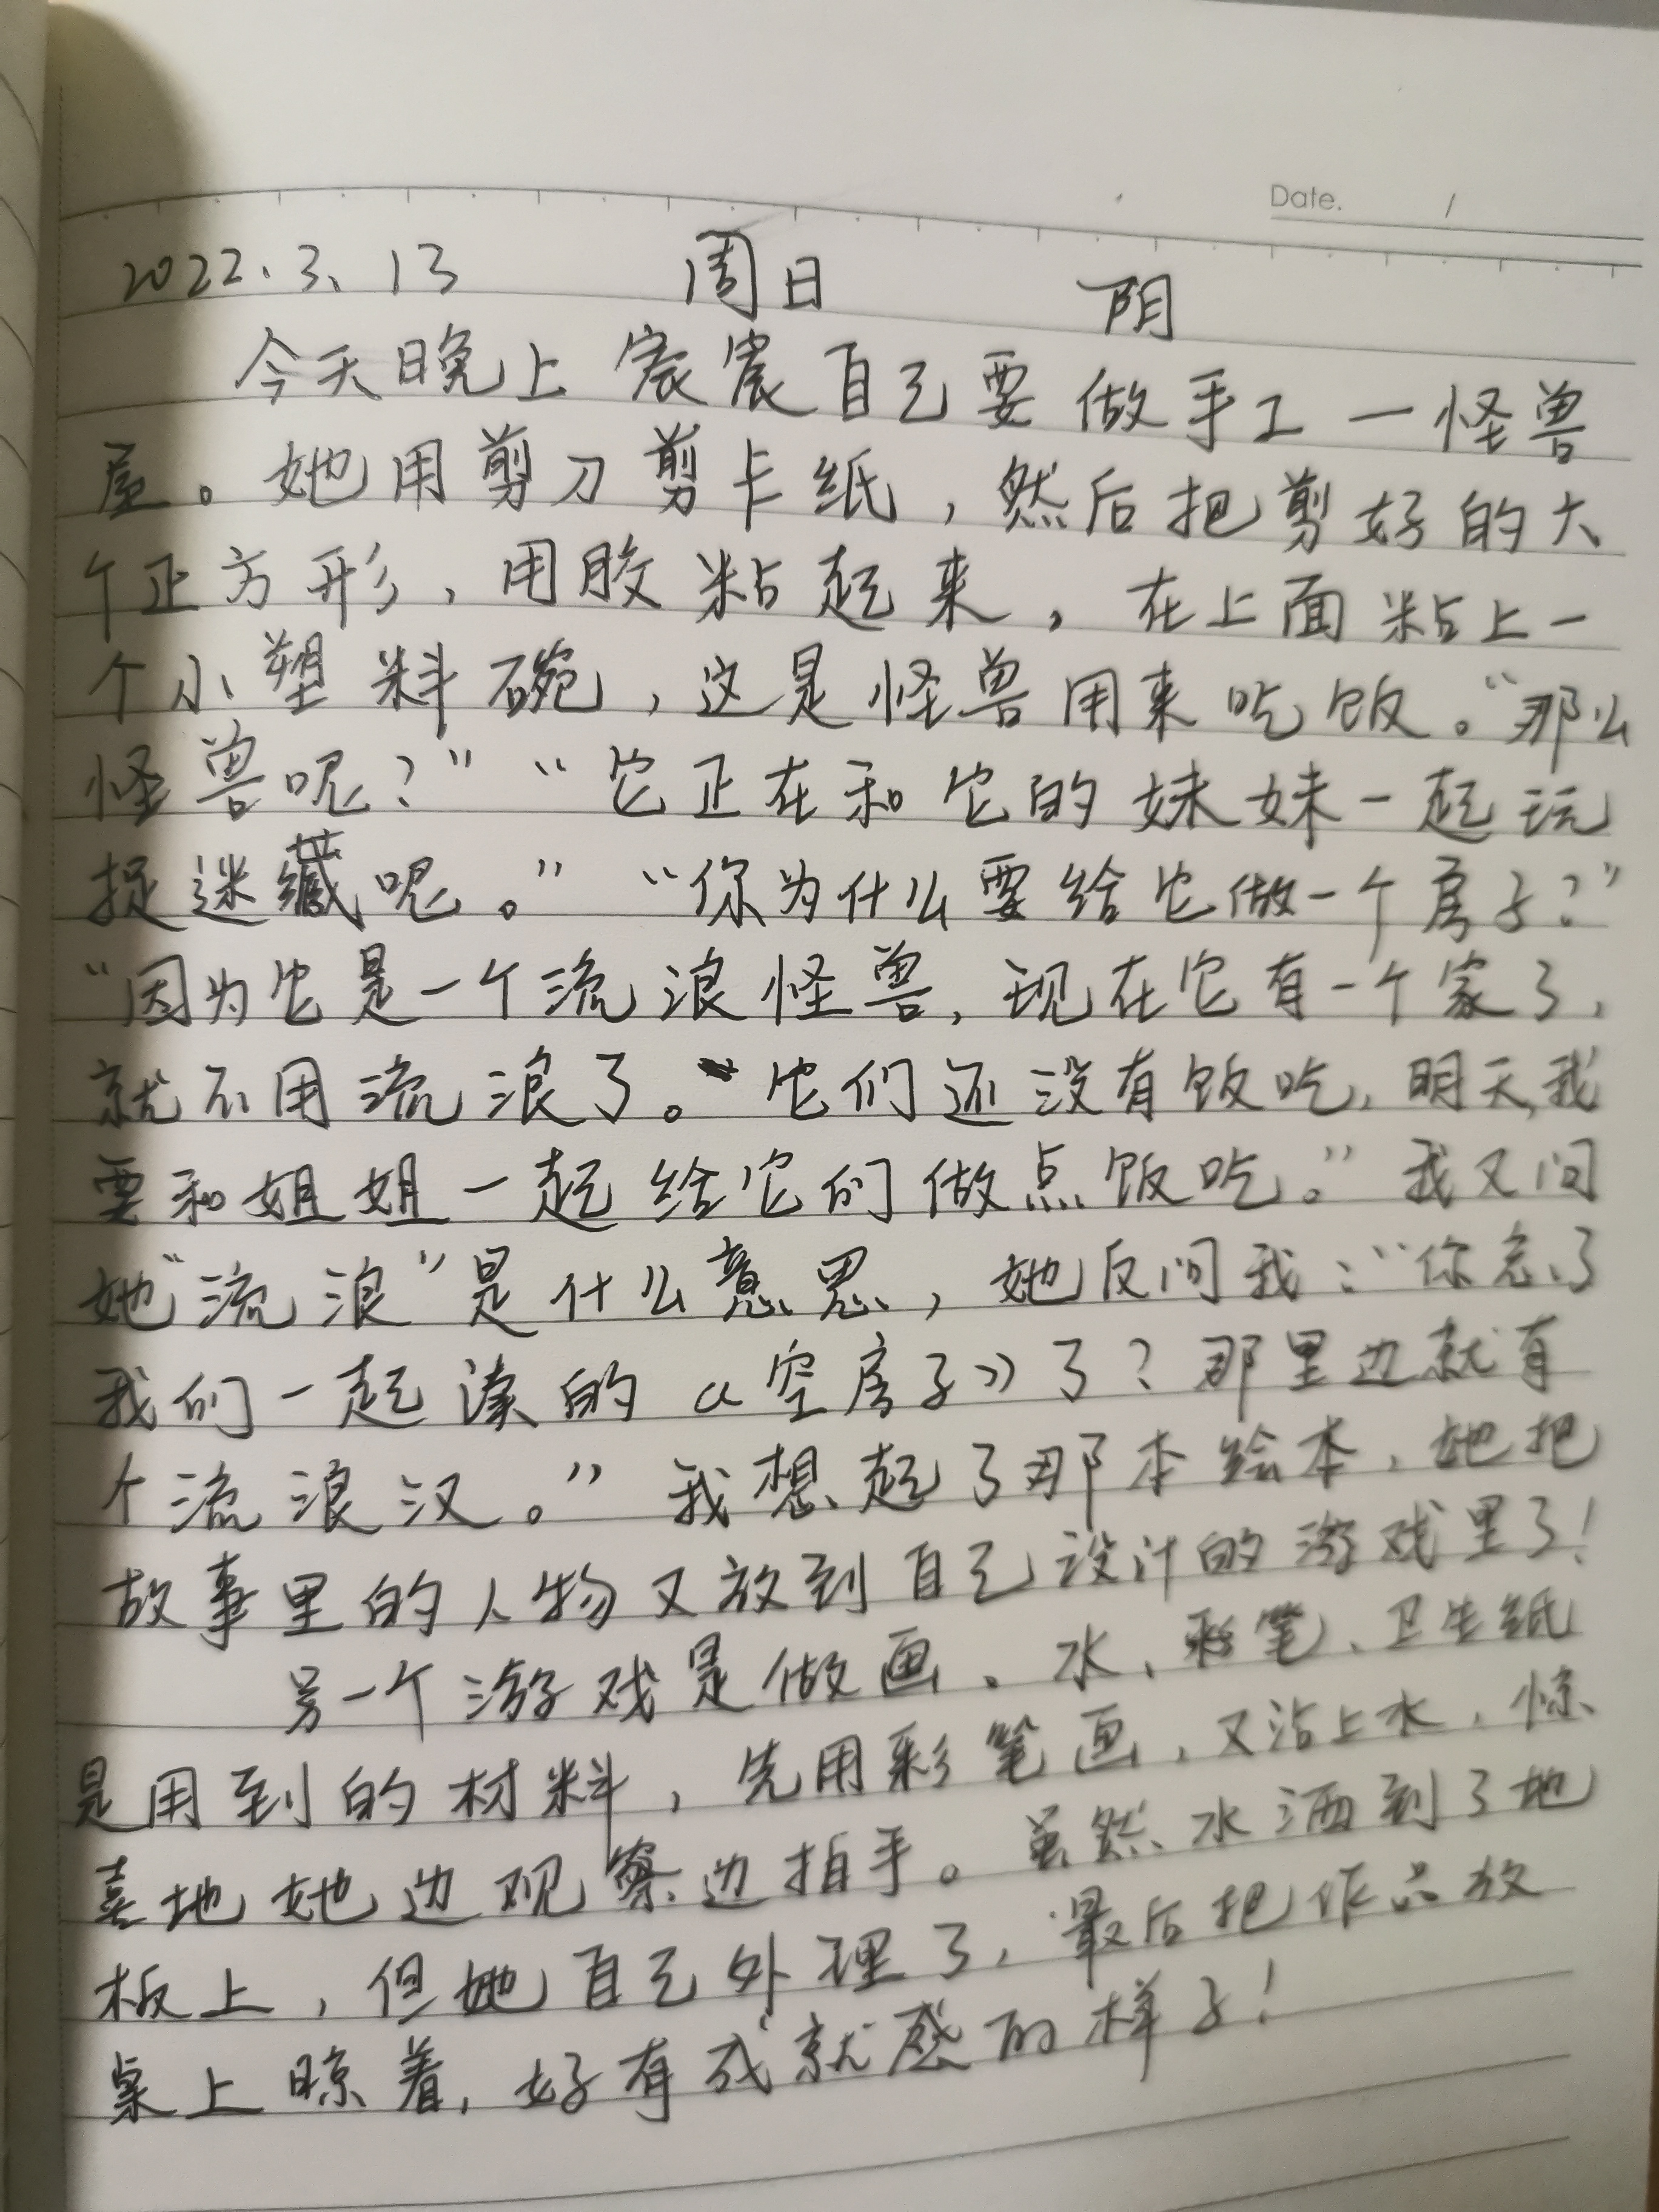 Date. /
2022.3.13 周日 阴
今天晚上宸宸自己要做手工一怪兽
屋。她用剪刀剪卡纸，然后把剪好的六
个正方形，用胶粘起来，在上面粘上一
个小塑料碗，这是怪兽用来吃饭。“那么
怪兽呢？”“它正在和它的妹妹一起玩
捉迷藏呢。”“你为什么要给它做一个房子？”
“因为它是一个流浪怪兽，现在它有一个家了，
就不用流浪了。“它们还没有饭吃，明天，我
要和姐姐一起给它们做点饭吃。”我又问
她“流浪”是什么意思，她反问我：“你忘了
我们一起读的《空房子》了？那里边就有
个流浪汉。”我想起了那本绘本，她把
故事里的人物又放到自己设计的游戏里了！
另一个游戏是做画。水、彩笔、卫生纸
是用到的材料，先用彩笔画，又沾上水，惊
喜地她边观察边拍手。虽然水洒到了地
板上，但她自己处理了，最后把作品放
桌上晾着，好有成就感的样子！